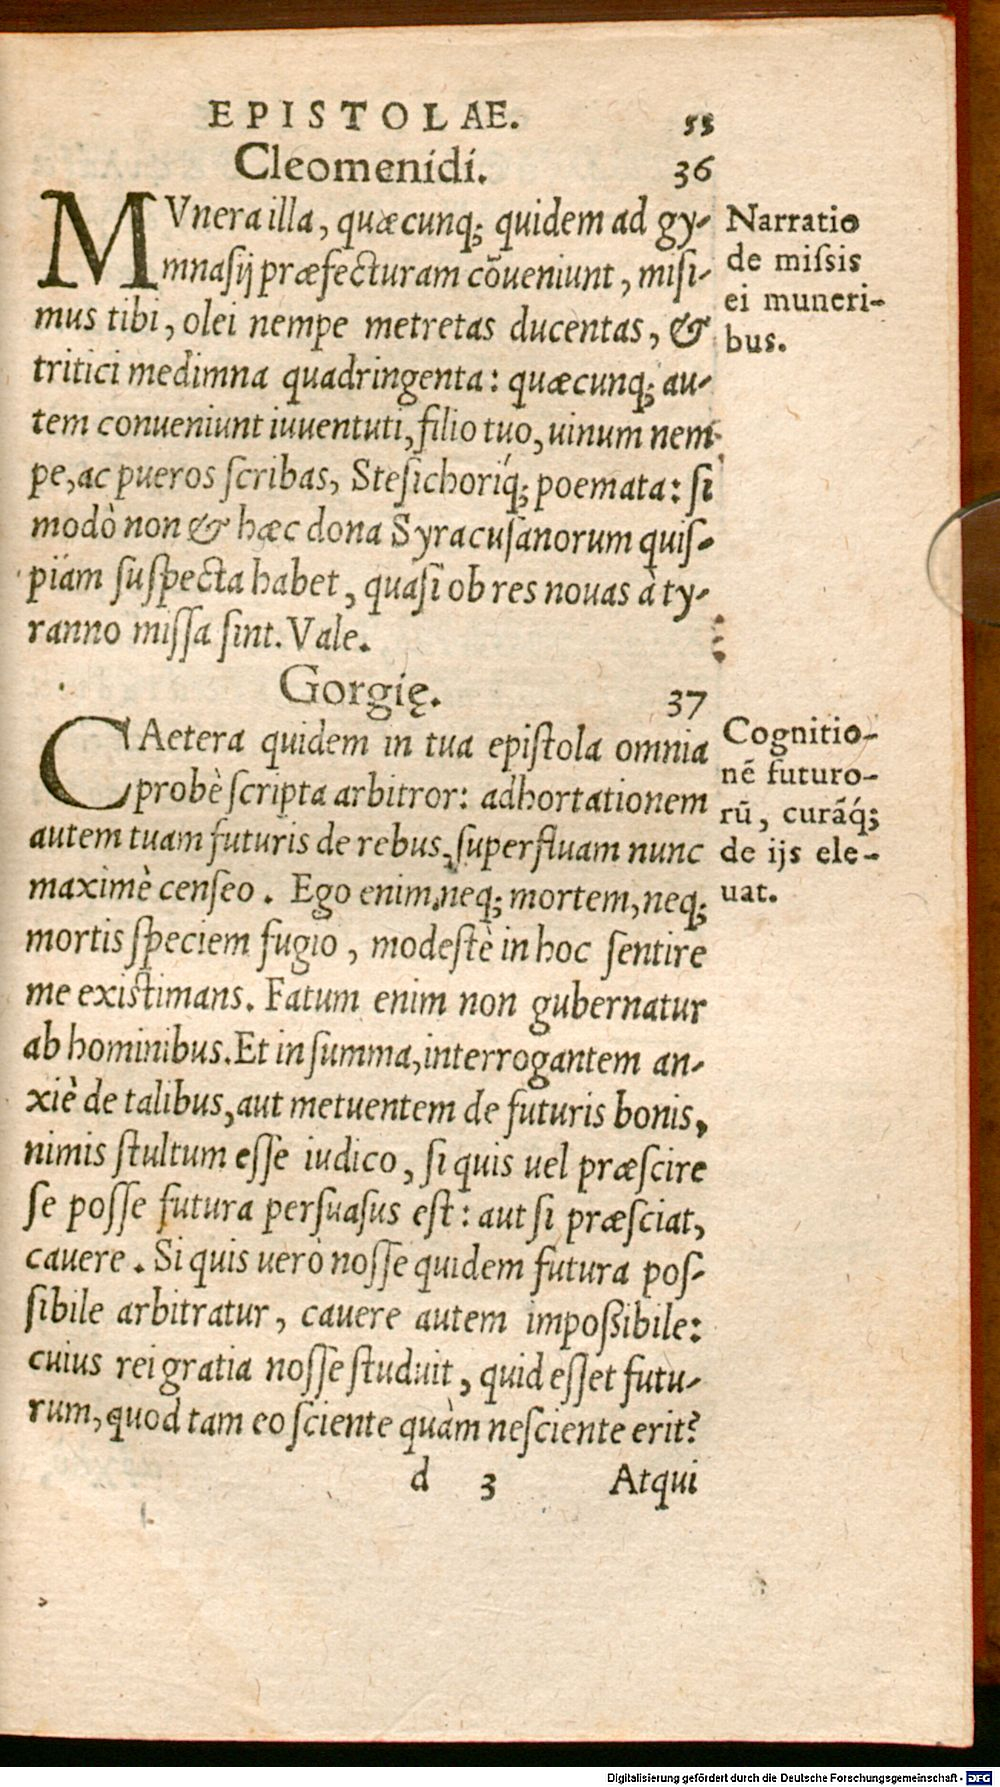 EPISTOLAE. 53
Cleomenidi. 36
MVnera illa, quæcunq; quidem ad gy-
mnasij præfecturam cōueniunt, misi-
mus tibi, olei nempe metretas ducentas, &
tritici medimna quadringenta: quæcunq; au-
tem conueniunt iuuentuti, filio tuo, uinum nem-
pe, ac pueros scribas, Stesichoriq́; poemata: si
modò non & hæc dona Syracusanorum quis-
piam suspecta habet, quasi ob res nouas à ty-
ranno missa sint. Vale.
Narratio
de missis
ei muneri-
bus.
Gorgię. 37
CAetera quidem in tua epistola omnia
probè scripta arbitror: adhortationem
autem tuam futuris de rebus, superfluam nunc
maximè censeo. Ego enim neq; mortem, neq;
mortis speciem fugio, modestè in hoc sentire
me existimans. Fatum enim non gubernatur
ab hominibus. Et in summa, interrogantem an-
xiè de talibus, aut metuentem de futuris bonis,
nimis stultum esse iudico, si quis uel præscire
se posse futura persuasus est: aut si præsciat,
cauere. Si quis uerò nosse quidem futura pos-
sibile arbitratur, cauere autem impoßibile:
cuius rei gratia nosse studuit, quid esset futu-
rum, quod tam eo sciente quàm nesciente erit?
Cognitio-
nē futuro-
rū, curāq́;
de ijs ele-
uat.
d 3 Atqui
Digitalisierung gefördert durch die Deutsche Forschungsgemeinschaft - DFG